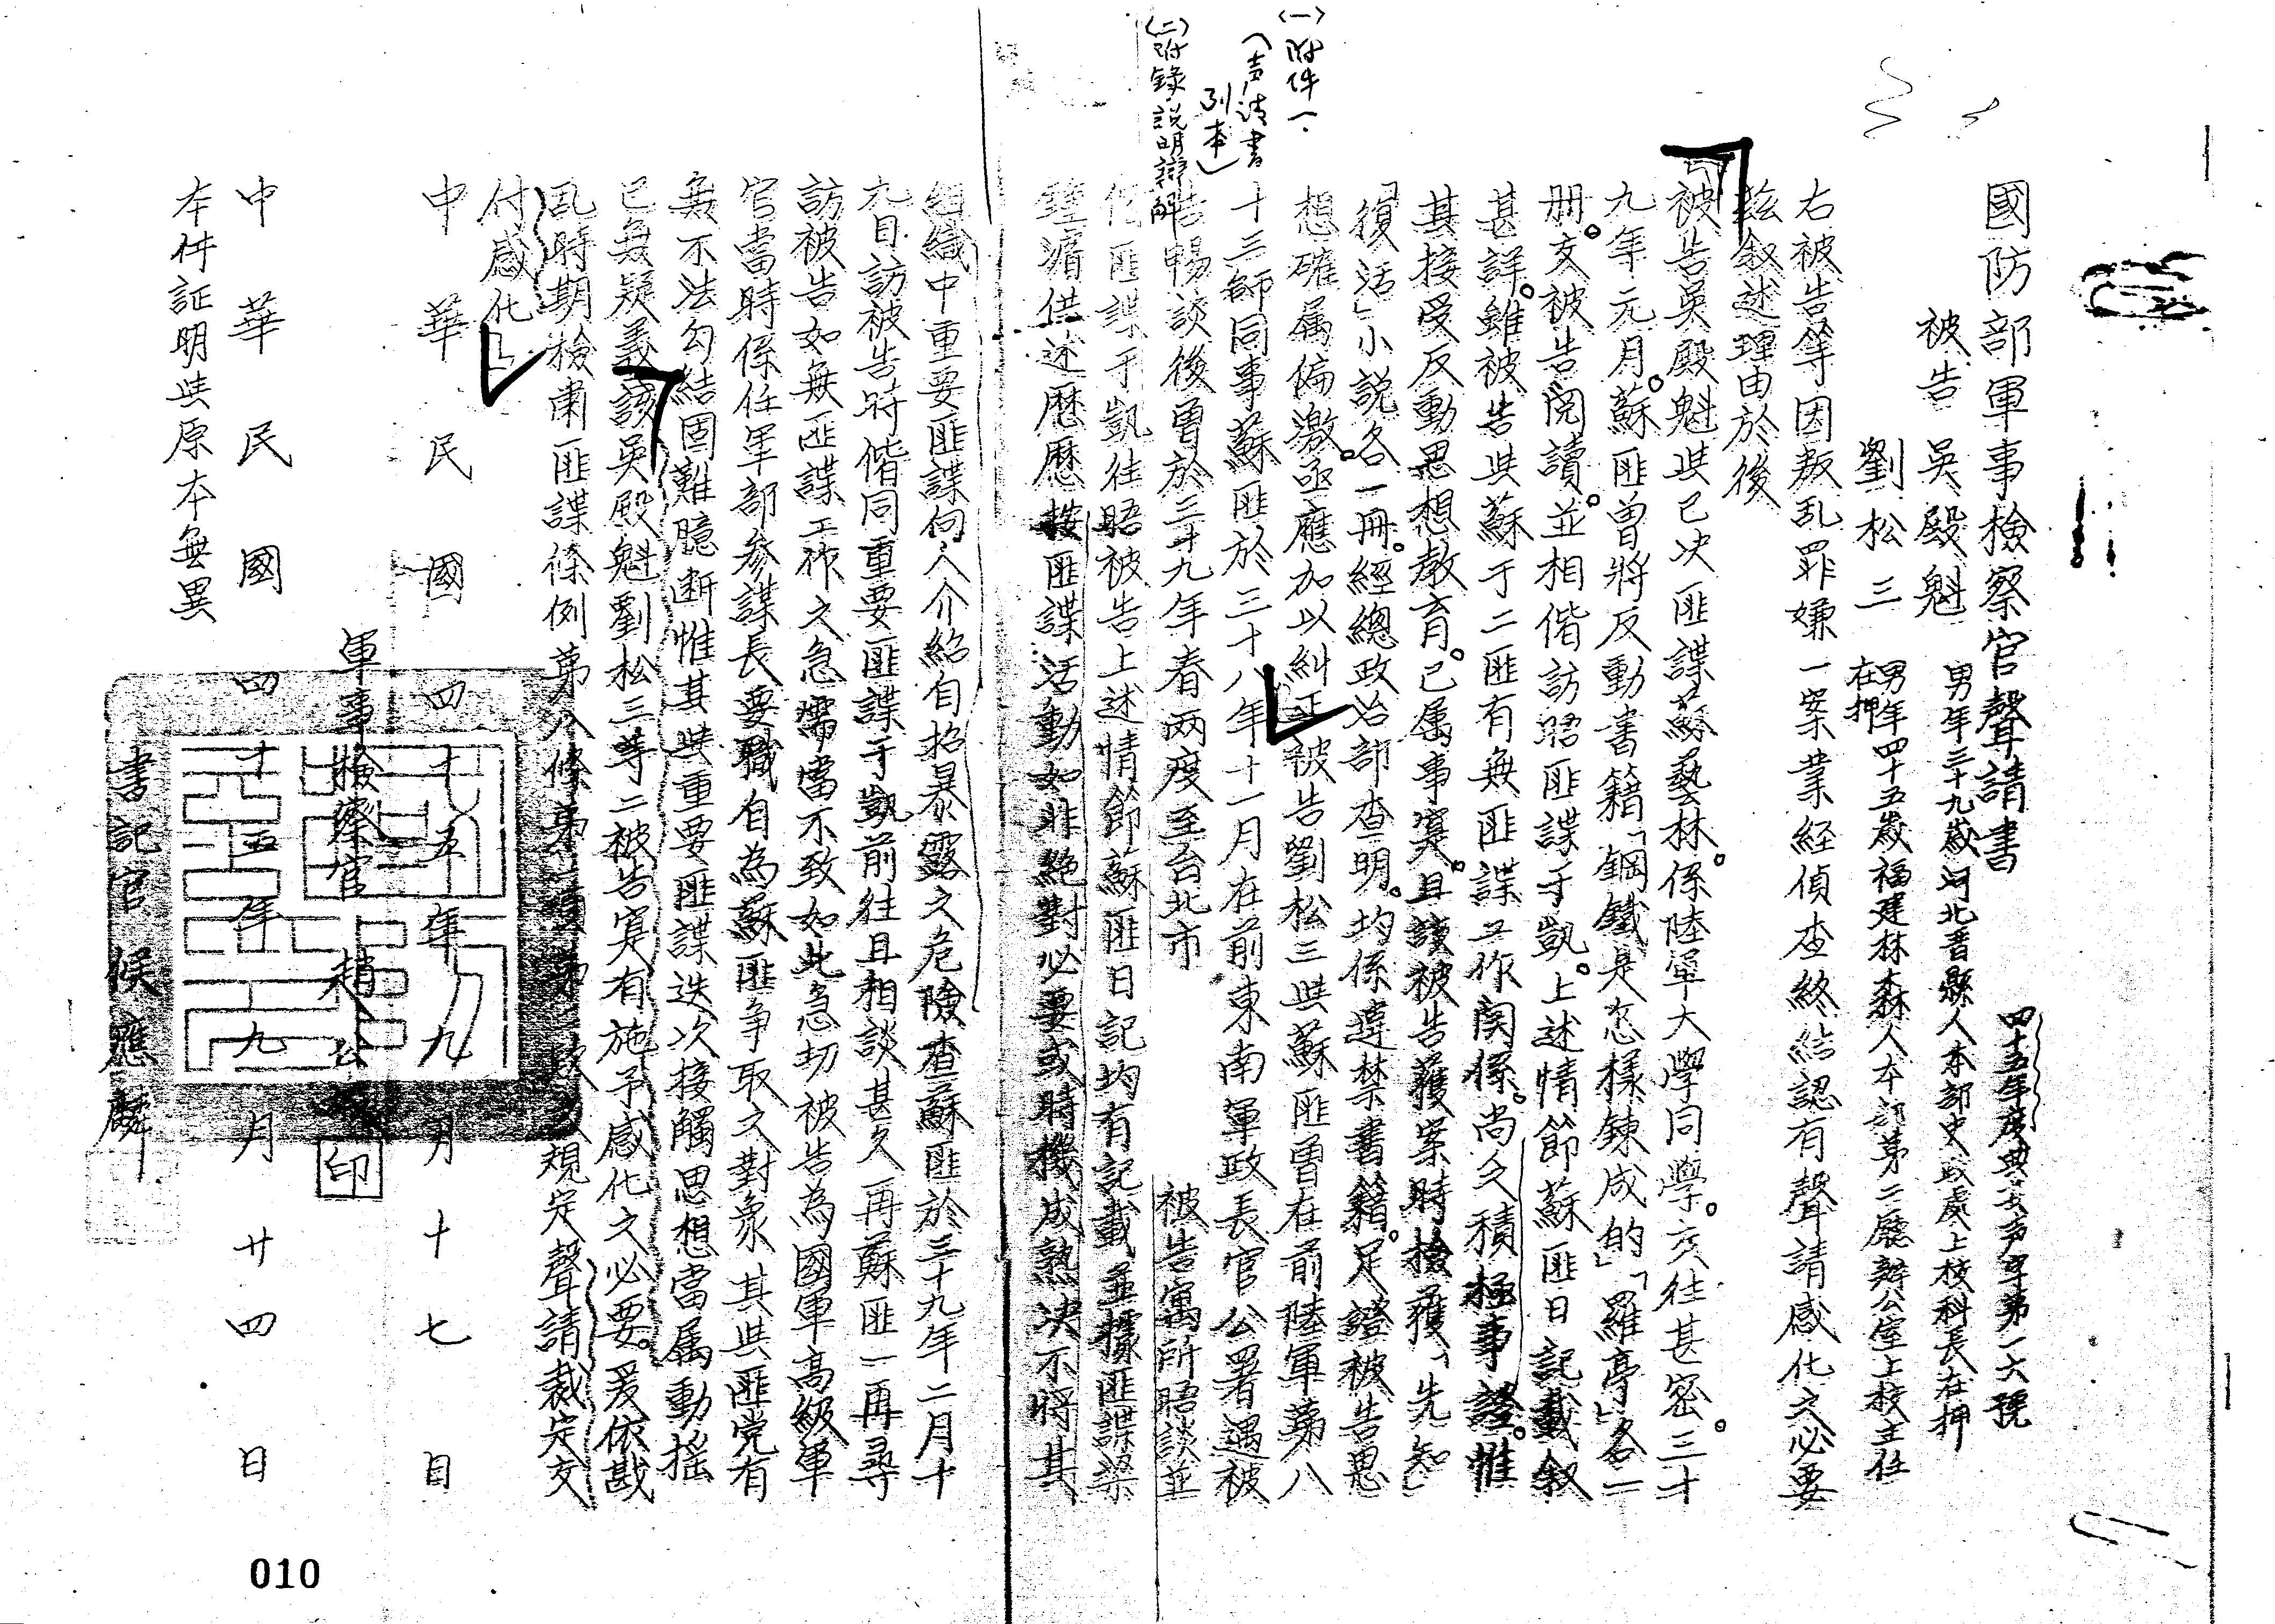 國防部軍事檢察官聲請書
四十五年度典
字第一六號
被告 吳殿魁 男年三十九歲河北晋縣人本部史政處上校科長在押
劉松三 男年四十五歲福建林森人本部第二廳辦公室上校主任
在押
右被告等因叛乱罪嫌一案業経偵查終結認有聲請感化之必要
茲叙述理由於後
被告吳殿魁與已决匪諜蘇藝林。係陸軍大學同學。交往甚密。三十
九年元月。蘇匪曾將反動書籍「鋼鐵是怎樣鍊成的」「羅亭」各一
册。交被告閱讀。並相偕訪晤匪諜于凱。上述情節蘇匪日記載叙
甚詳。雖被告與蘇于二匪有無匪諜工作関係。尚乏積極事證。惟
其接受反動思想教育。已属事實。且該被告獲案時檢獲「先知」
「復活」小説各一冊。經總政治部查明。均係違禁書籍。足證被告思
想確属偏激。亟應加以糾正被告劉松三與蘇匪曾在前陸軍第八
十三師同事蘇匪於三十八年十一月在前東南軍政長官公署遇被
告暢談後曾於三十九年春两度至台北市 被告寓所晤談並
偕匪諜于凱往晤被告上述情節蘇匪日記均有記載並據匪諜梁
鍾濬供述歷歷按匪諜活動如非絕對必要或時機成熟决不將其
組織中重要匪諜向人介紹自招暴露之危險查蘇匪於三十九年二月十
九日訪被告時偕同重要匪諜于凱前往且相談甚久再蘇匪一再尋
訪被告如無匪諜工作之急需當不致如此急切被告為國軍高級軍
官當時係任軍部參謀長要職自為蘇匪争取之對象其與匪党有
無不法勾結固難臆断惟其與重要匪諜迭次接觸思想當属動摇
已無疑義該吳殿魁劉松三等二被告寔有施予感化之必要。爰依戡
乱時期檢肅匪諜條例第八條第一項第二款之規定聲請裁定交
付感化
中華民國四十五年九月十七日
軍事檢察官 趙公 印
中華民國四十五年九月廿四日
本件証明與原本無異
書記官 候應麟
(一)附件一.
(声请書
列本)
(二)附錄.説明辯解
010